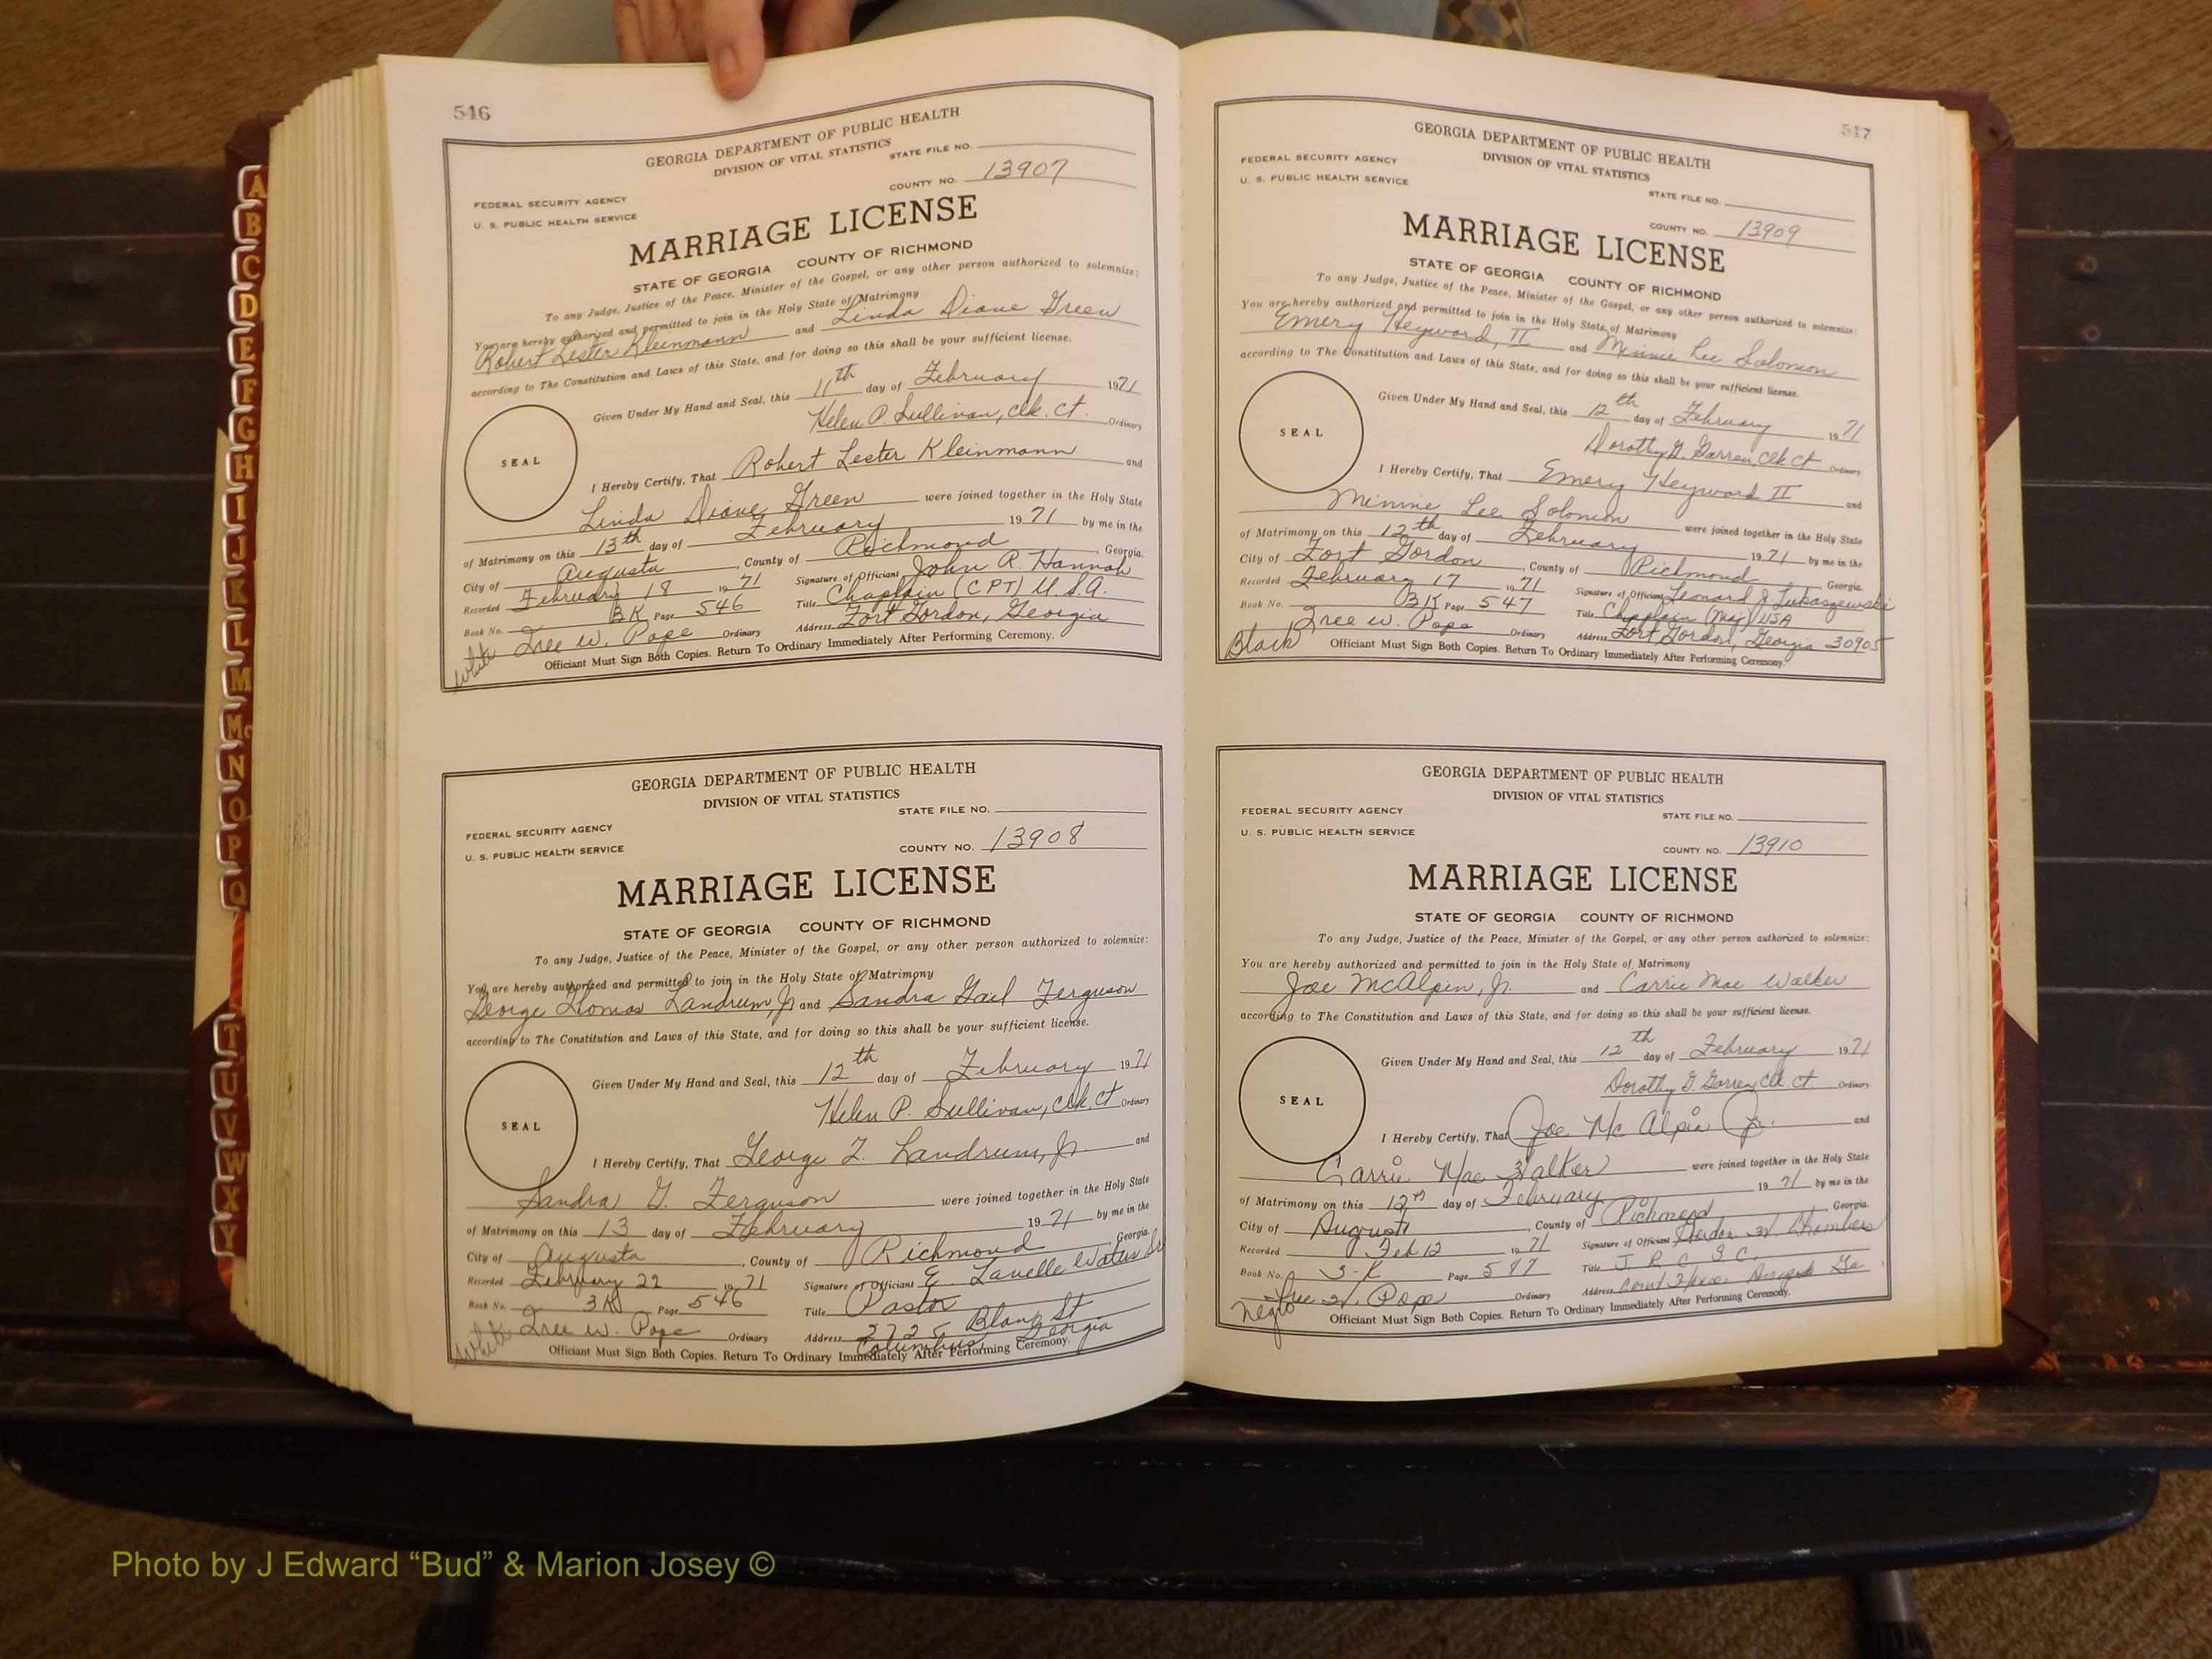 546
GEORGIA DEPARTMENT OF PUBLIC HEALTH
DIVISION OF VITAL STATISTICS
STATE FILE NO.
COUNTY NO. 13907
FEDERAL SECURITY AGENCY
U. S. PUBLIC HEALTH SERVICE
MARRIAGE LICENSE
STATE OF GEORGIA COUNTY OF RICHMOND
To any Judge, Justice of the Peace, Minister of the Gospel, or any other person authorized to solemnize:
You are hereby authorized and permitted to join in the Holy State of Matrimony
Robert Lester Kleinmann and Linda Diane Green
according to The Constitution and Laws of this State, and for doing so this shall be your sufficient license.
Given Under My Hand and Seal, this 11th day of February 1971
Helen P. Sullivan, Clk. Ct. Ordinary
SEAL
I Hereby Certify, That Robert Lester Kleinmann and
Linda Diane Green were joined together in the Holy State
of Matrimony on this 13th day of February 1971 by me in the
City of Augusta, County of Richmond, Georgia.
Recorded February 18 1971 Signature of Officiant John R. Hannah
Book No. 3K Page 546 Title Chaplain (CPT) U.S.A.
Tree W. Pope Ordinary Address Fort Gordon, Georgia
White Officiant Must Sign Both Copies. Return To Ordinary Immediately After Performing Ceremony.
GEORGIA DEPARTMENT OF PUBLIC HEALTH
DIVISION OF VITAL STATISTICS
STATE FILE NO.
FEDERAL SECURITY AGENCY
U. S. PUBLIC HEALTH SERVICE
COUNTY NO. 13908
MARRIAGE LICENSE
STATE OF GEORGIA COUNTY OF RICHMOND
To any Judge, Justice of the Peace, Minister of the Gospel, or any other person authorized to solemnize:
You are hereby authorized and permitted to join in the Holy State of Matrimony
George Thomas Landrum, Jr and Sandra Gail Ferguson
according to The Constitution and Laws of this State, and for doing so this shall be your sufficient license.
Given Under My Hand and Seal, this 12th day of February 1971
Helen P. Sullivan, Clk. Ct Ordinary
SEAL
I Hereby Certify, That George T. Landrum, Jr. and
Sandra G. Ferguson were joined together in the Holy State
of Matrimony on this 13 day of February 1971 by me in the
City of Augusta, County of Richmond, Georgia.
Recorded February 22 1971 Signature of Officiant E. Lavelle Waters Sr
Book No. 3K Page 546 Title Pastor
Tree W. Pope Ordinary Address 2725 Blan St
Columbus, Georgia
White Officiant Must Sign Both Copies. Return To Ordinary Immediately After Performing Ceremony.
547
GEORGIA DEPARTMENT OF PUBLIC HEALTH
DIVISION OF VITAL STATISTICS
FEDERAL SECURITY AGENCY
U. S. PUBLIC HEALTH SERVICE
STATE FILE NO.
COUNTY NO. 13909
MARRIAGE LICENSE
STATE OF GEORGIA COUNTY OF RICHMOND
To any Judge, Justice of the Peace, Minister of the Gospel, or any other person authorized to solemnize:
You are hereby authorized and permitted to join in the Holy State of Matrimony
Emery Heyward, II and Minnie Lee Solomon
according to The Constitution and Laws of this State, and for doing so this shall be your sufficient license.
Given Under My Hand and Seal, this 12th day of February 1971
Dorothy G. Garren, Clk Ct Ordinary
SEAL
I Hereby Certify, That Emery Heyward II and
Minnie Lee Solomon were joined together in the Holy State
of Matrimony on this 12th day of February 1971 by me in the
City of Fort Gordon, County of Richmond, Georgia.
Recorded February 17 1971 Signature of Officiant Leonard J. Lukaszewski
Book No. 3K Page 547 Title Chaplain (Maj) USA
Tree W. Pope Ordinary Address Fort Gordon, Georgia 30905
Black Officiant Must Sign Both Copies. Return To Ordinary Immediately After Performing Ceremony.
GEORGIA DEPARTMENT OF PUBLIC HEALTH
DIVISION OF VITAL STATISTICS
FEDERAL SECURITY AGENCY
U. S. PUBLIC HEALTH SERVICE
STATE FILE NO.
COUNTY NO. 13910
MARRIAGE LICENSE
STATE OF GEORGIA COUNTY OF RICHMOND
To any Judge, Justice of the Peace, Minister of the Gospel, or any other person authorized to solemnize:
You are hereby authorized and permitted to join in the Holy State of Matrimony
Joe McAlpin, Jr. and Carrie Mae Walker
according to The Constitution and Laws of this State, and for doing so this shall be your sufficient license.
Given Under My Hand and Seal, this 12th day of February 1971
Dorothy G. Garren, Clk. Ct. Ordinary
SEAL
I Hereby Certify, That Joe McAlpin Jr. and
Carrie Mae Walker were joined together in the Holy State
of Matrimony on this 12th day of February 1971 by me in the
City of Augusta, County of Richmond, Georgia.
Recorded Feb 12 1971 Signature of Officiant W Chambers
Book No. 3-K Page 547 Title J. P.
W. Pope Ordinary Address Court House Augusta Ga
Negro Officiant Must Sign Both Copies. Return To Ordinary Immediately After Performing Ceremony.
A
B
C
D
E
F
G
H
I
J
K
L
M
Mc
N
O
P
Q
T
U
V
W
X
Y
Photo by J Edward “Bud” & Marion Josey ©